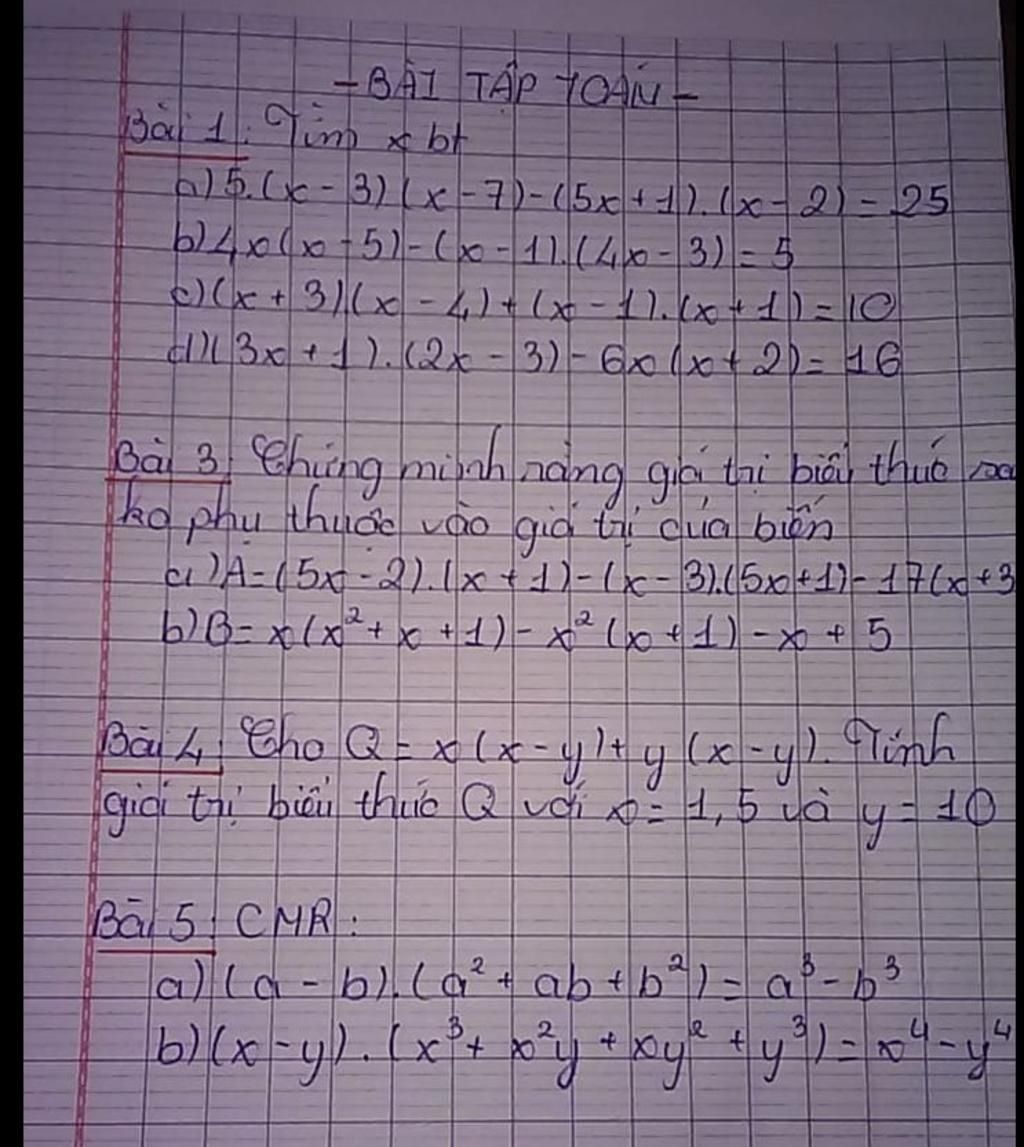 - BÀI TẬP TOÁN -
Bài 1: Tìm x bt
a) 5.(x - 3)(x - 7) - (5x + 1).(x - 2) = 25
b) 4x(x + 5) - (x - 1).(4x - 3) = 5
c) (x + 3)(x - 4) + (x - 1).(x + 1) = 10
d) (3x + 1).(2x - 3) - 6x(x + 2) = 16
Bài 3: Chứng minh rằng giá trị biểu thức
ko phụ thuộc vào giá trị của biến
a) A = (5x - 2).(x + 1) - (x - 3).(5x + 1) - 17(x + 3
b) B = x(x² + x + 1) - x²(x + 1) - x + 5
Bài 4: Cho Q = x(x - y) + y(x - y). Tính
giá trị biểu thức Q với x = 1,5 và y = 10
Bài 5: CMR:
a) (a - b).(a² + ab + b²) = a³ - b³
b) (x - y).(x³ + x²y + xy² + y³) = x⁴ - y⁴